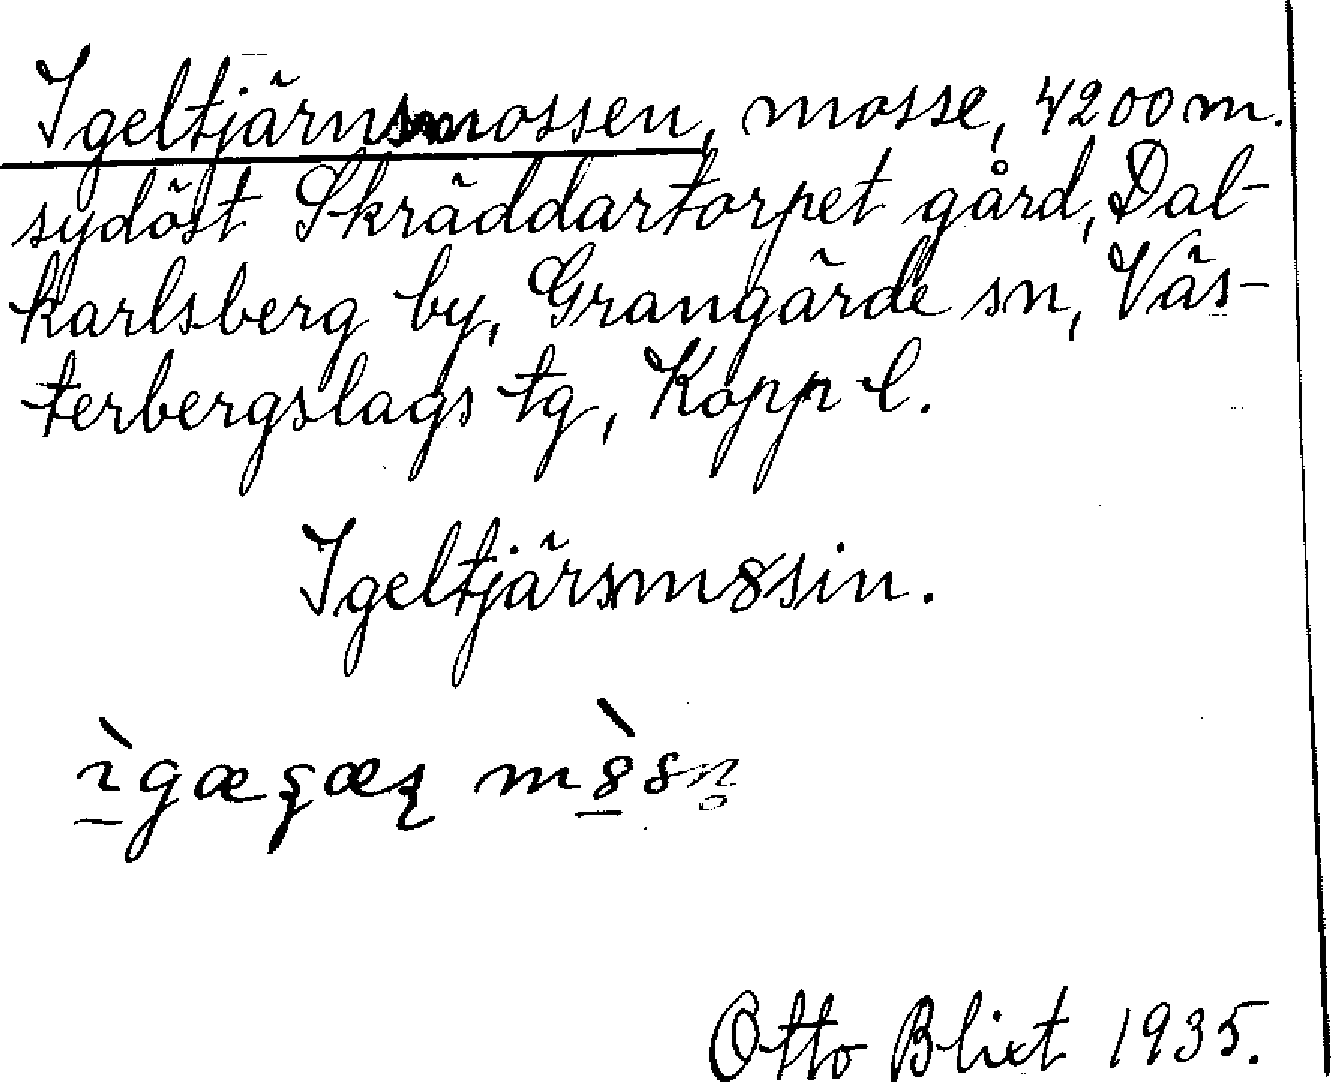 Igeltjärnsmossen, mosse, 4200 m.
sydöst Skräddartorpet gård, Dal-
karlsberg by, Grangärde sn, Väs-
terbergslags tg, Kopp l.
Igeltjärsm8sin.
Otto Blixt 1935.